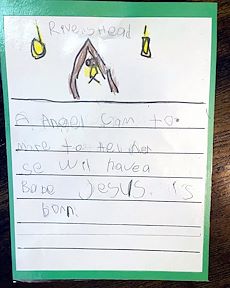 River Head
A Angel Cam to
mare to tel her
se wil havea
Babe Jesus. is
born.